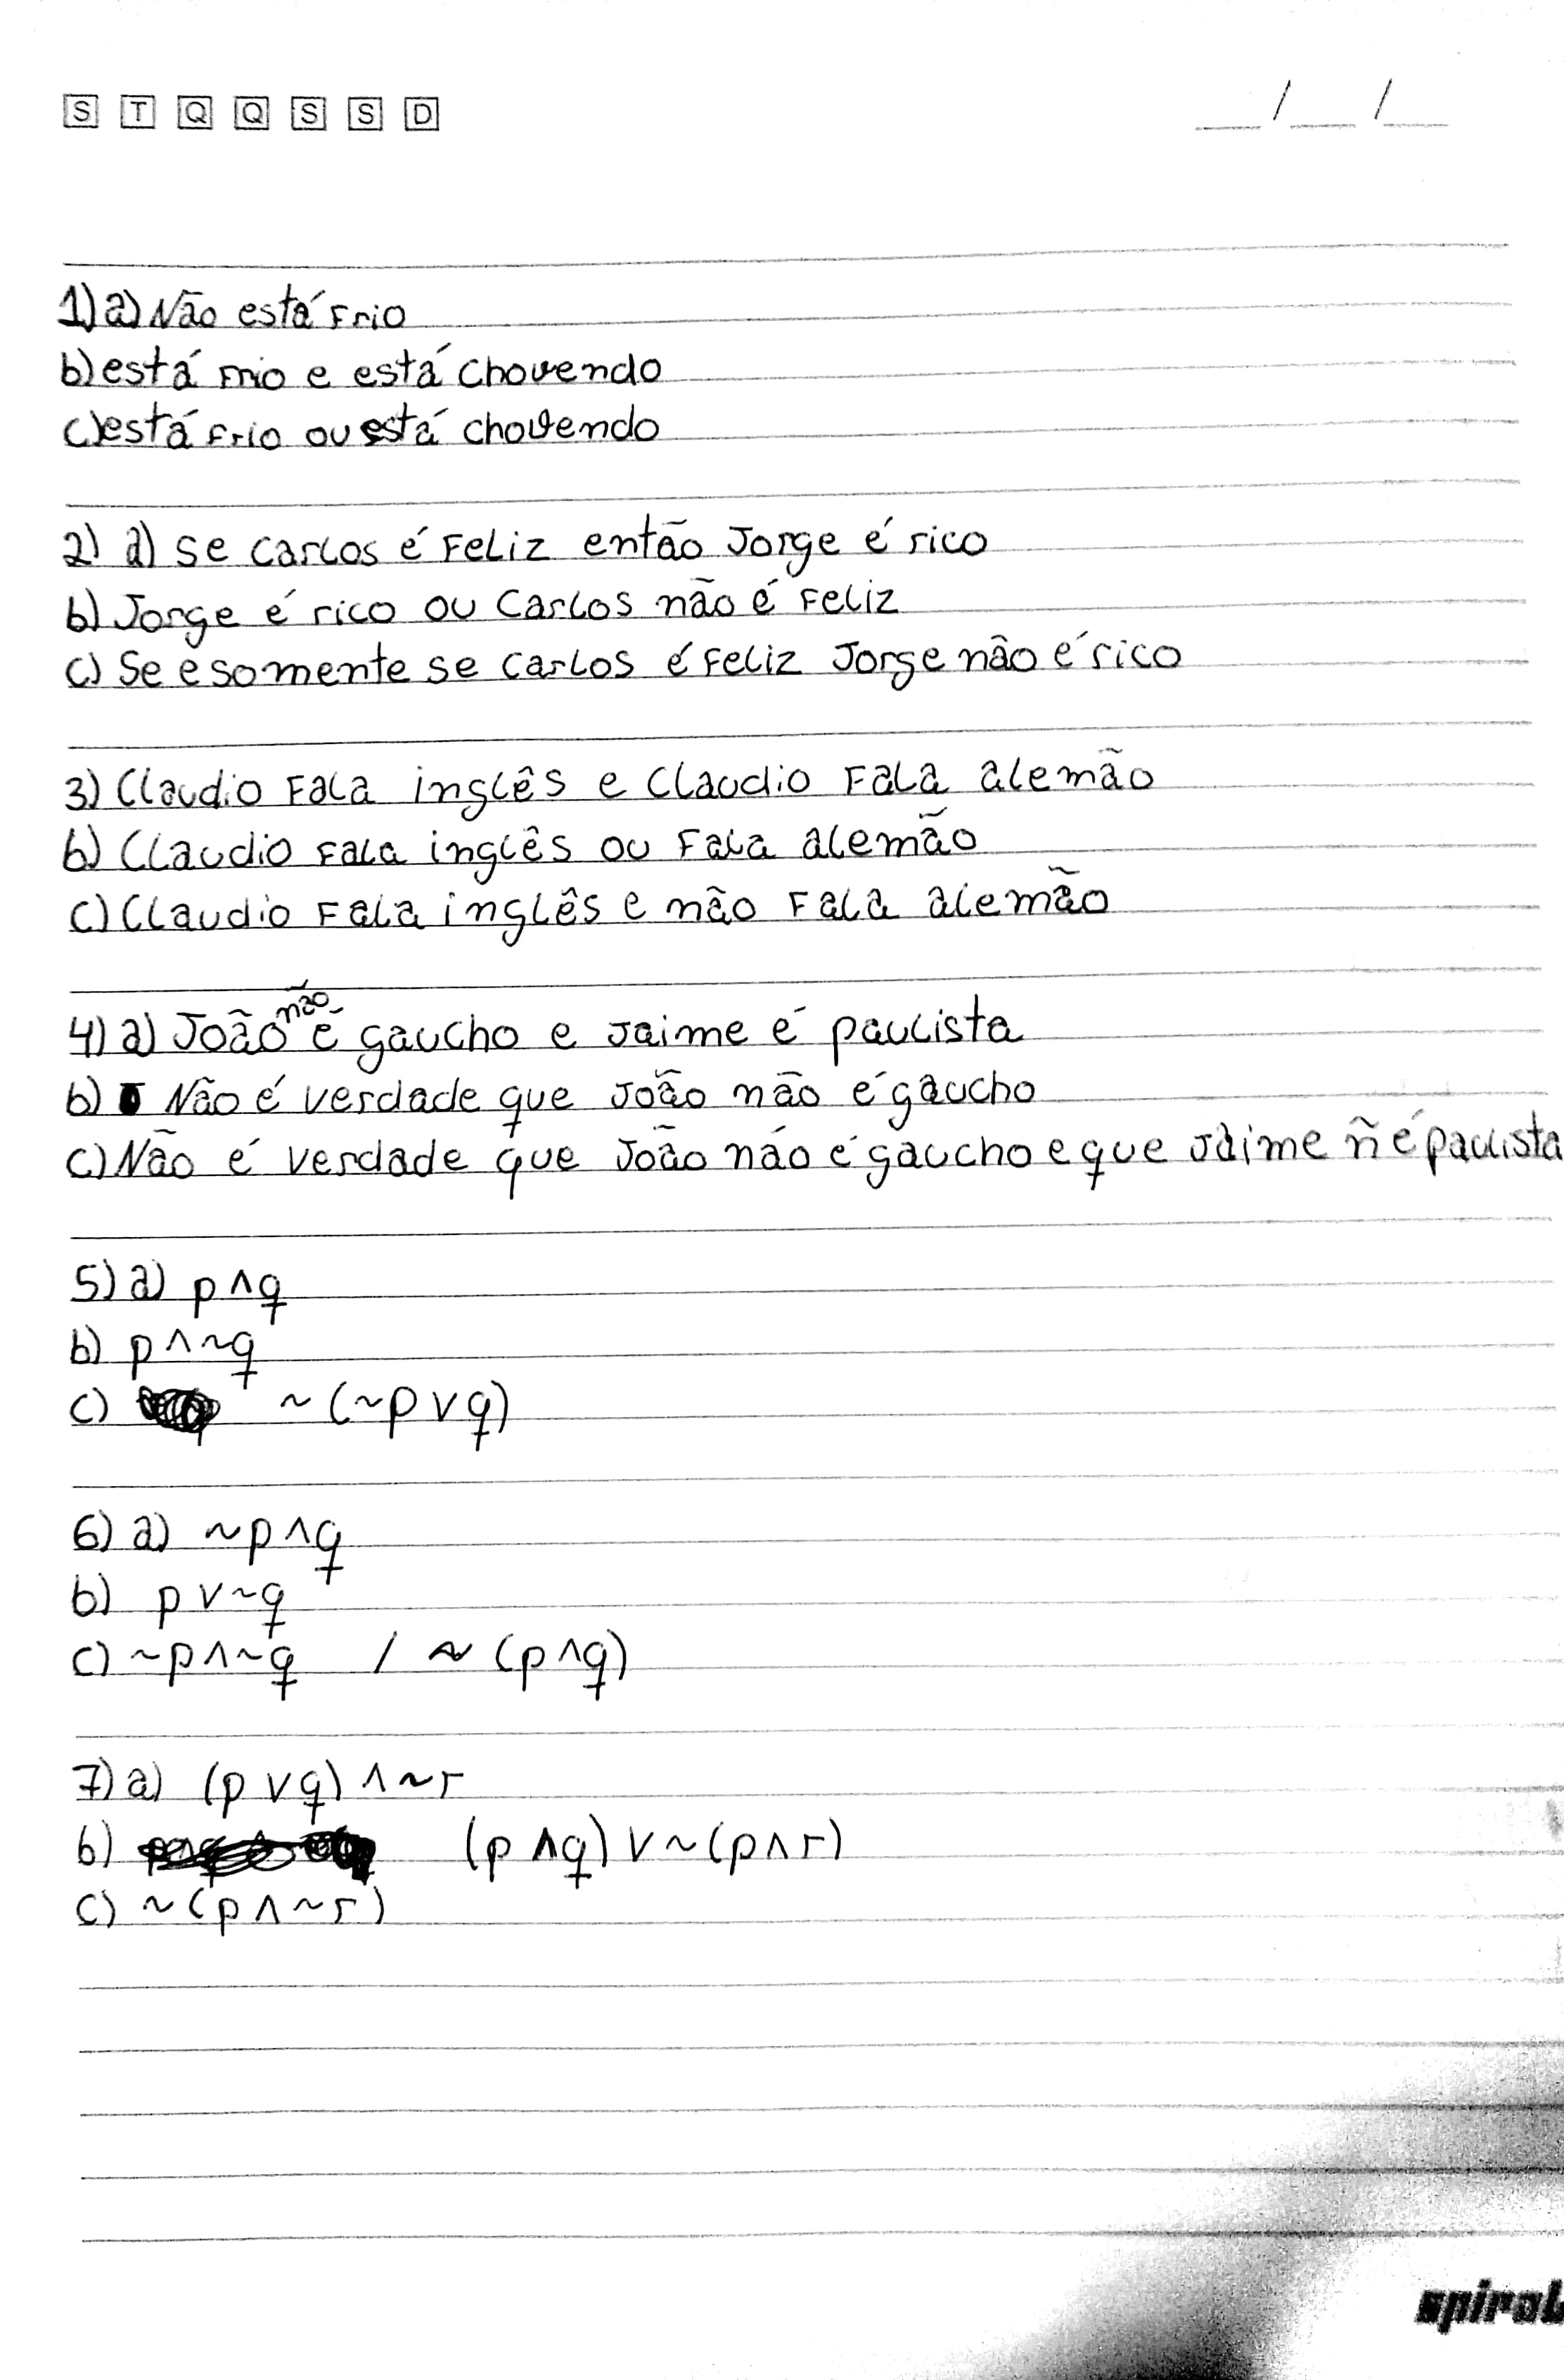 S T Q Q S S D __/__/__
1) a) Não está Frio
b) está frio e está chovendo
c) está frio ou está chovendo
2) a) se Carlos é Feliz então Jorge é rico
b) Jorge é rico ou Carlos não é Feliz
c) Se e somente se Carlos é Feliz Jorge não é rico
3) Claudio Fala inglês e Claudio Fala alemão
b) Claudio Fala inglês ou Fala alemão
c) Claudio Fala inglês e não Fala alemão
4) a) João não é gaucho e Jaime é paulista
b) Não é verdade que João não é gaucho
c) Não é verdade que João não é gaucho e que Jaime ñ é paulista
5) a) p ∧ q
b) p ∧ ~q
c) ~(~p ∨ q)
6) a) ~p ∧ q
b) p ∨ ~q
c) ~p ∧ ~q / ~(p ∧ q)
7) a) (p ∨ q) ∧ ~r
b) (p ∧ q) ∨ ~(p ∧ r)
c) ~(p ∧ ~r)
spiral